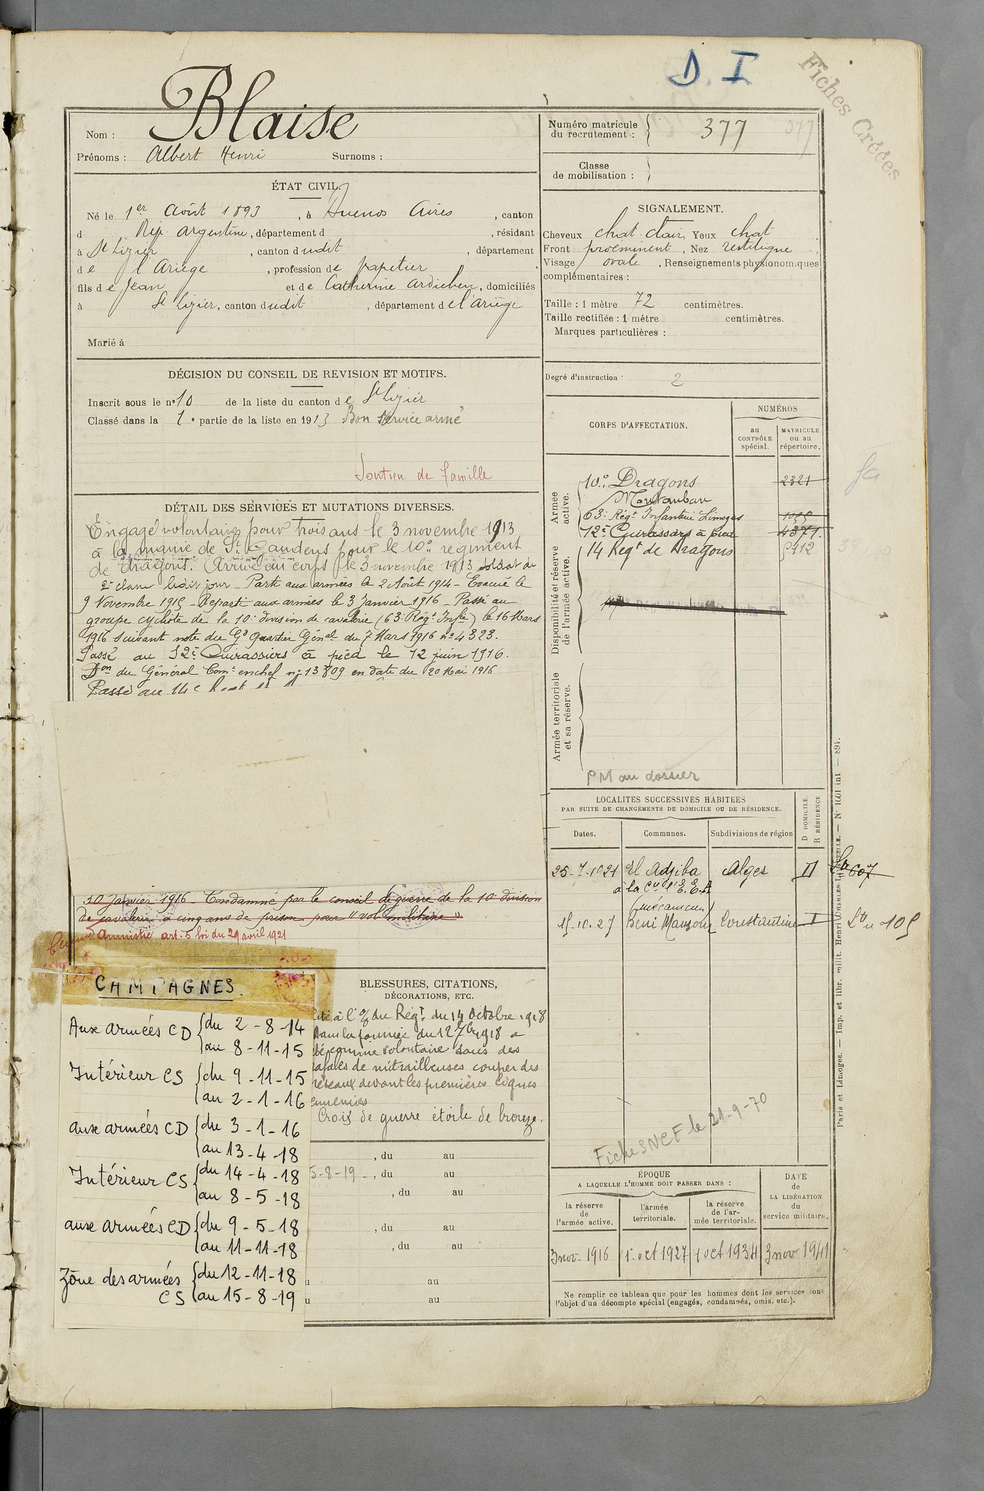 D. I
Fiches Créées
Nom : Blaise
Prénoms : Albert Henri Surnoms :
Numéro matricule du recrutement : 377
Classe de mobilisation :
ÉTAT CIVIL.
Né le 1er Août 1893, à Buenos Aires, canton
d Rép. Argentine, département d , résidant
à St Lizier, canton dudit, département
de l'Ariège, profession de papetier
fils de Jean et de Catherine Ardichen, domiciliés
à St Lizier, canton dudit, département de l'ariège
Marié à
SIGNALEMENT.
Cheveux chat. clair Yeux chat
Front proéminent, Nez rectiligne
Visage ovale, Renseignements physionomiques
complémentaires :
Taille : 1 mètre 72 centimètres.
Taille rectifiée : 1 mètre centimètres.
Marques particulières :
Degré d'instruction : 2
DÉCISION DU CONSEIL DE REVISION ET MOTIFS.
Inscrit sous le no 10 de la liste du canton de St Lizier
Classé dans la 1e partie de la liste en 1913 Bon Service armé
Soutien de famille
DÉTAIL DES SERVICES ET MUTATIONS DIVERSES.
Engagé volontaire pour trois ans le 3 novembre 1913
à la mairie de St Gaudens pour le 10e régiment
de dragons. Arrivé au corps le 3 novembre 1913 soldat de
2e classe ledit jour. Parti aux armées le 2 Août 1914 - Evacué le
9 Novembre 1915 - Reparti aux armées le 3 Janvier 1916 - Passé au
groupe cycliste de la 10e division de cavalerie (63e Régt Inf.ie) le 16 Mars
1916 suivant note du Gd Quartier Génal du 7 Mars 1916 no 4323.
Passé au 12e Cuirassiers à pied le 12 juin 1916.
Don du Général Comt en chef no 13809 en date du 20 Mai 1916
Passé au 14e
30 janvier 1916 Condamné par le conseil de guerre de la 10e division
de cavalerie à cinq ans de prison pour "vol militaire"
Amnistié art. 5 loi du 29 avril 1921
CORPS D'AFFECTATION.
NUMÉROS
au CONTRÔLE spécial.
MATRICULE ou au répertoire.
Armée active.
10e Dragons 2321
Montauban
63e Régt Infanterie Limoges
12e Cuirassiers à pied 4371
14 Regt de Dragons
Disponibilité et réserve de l'armée active.
Armée territoriale et sa réserve.
PM au dossier
LOCALITÉS SUCCESSIVES HABITÉES
PAR SUITE DE CHANGEMENTS DE DOMICILE OU DE RÉSIDENCE.
Dates. Communes. Subdivisions de région
D DOMICILE R RÉSIDENCE
25-7-1921 El Adjiba Alger 607
(mécanicien)
15.10.27 Beni Mansour Constantine 105
Fiche SNCF le 21-9-70
CAMPAGNES.
Aux armées CD du 2-8-14
au 8-11-15
Intérieur CS du 9-11-15
au 2-1-16
aux armées CD du 3-1-16
au 13-4-18
Intérieur CS du 14-4-18
au 8-5-18
aux armées CD du 9-5-18
au 11-11-18
Zône des armées du 12-11-18
CS au 15-8-19
BLESSURES, CITATIONS,
DÉCORATIONS, ETC.
Cité à l'o/ du Régt du 14 Octobre 1918
Dans la journée du 1918 a
comme volontaire sous des
rafales de mitrailleuses couper des
réseaux devant les premières lignes
ennemies
Croix de guerre étoile de bronze.
, du au
5-8-19 , du au
, du au
, du au
, du au
au
au
ÉPOQUE
A LAQUELLE L'HOMME DOIT PASSER DANS :
la réserve de l'armée active.
l'armée territoriale.
la réserve de l'armée territoriale.
DATE de LA LIBÉRATION du service militaire.
3 nov. 1916 1er oct 1927 1 oct 1934 3 nov 1941
Ne remplir ce tableau que pour les hommes dont les services font
l'objet d'un décompte spécial (engagés, condamnés, omis, etc.).
Paris et Limoges. — Imp. et libr. milit. Henri CHARLES-LAVAUZELLE.